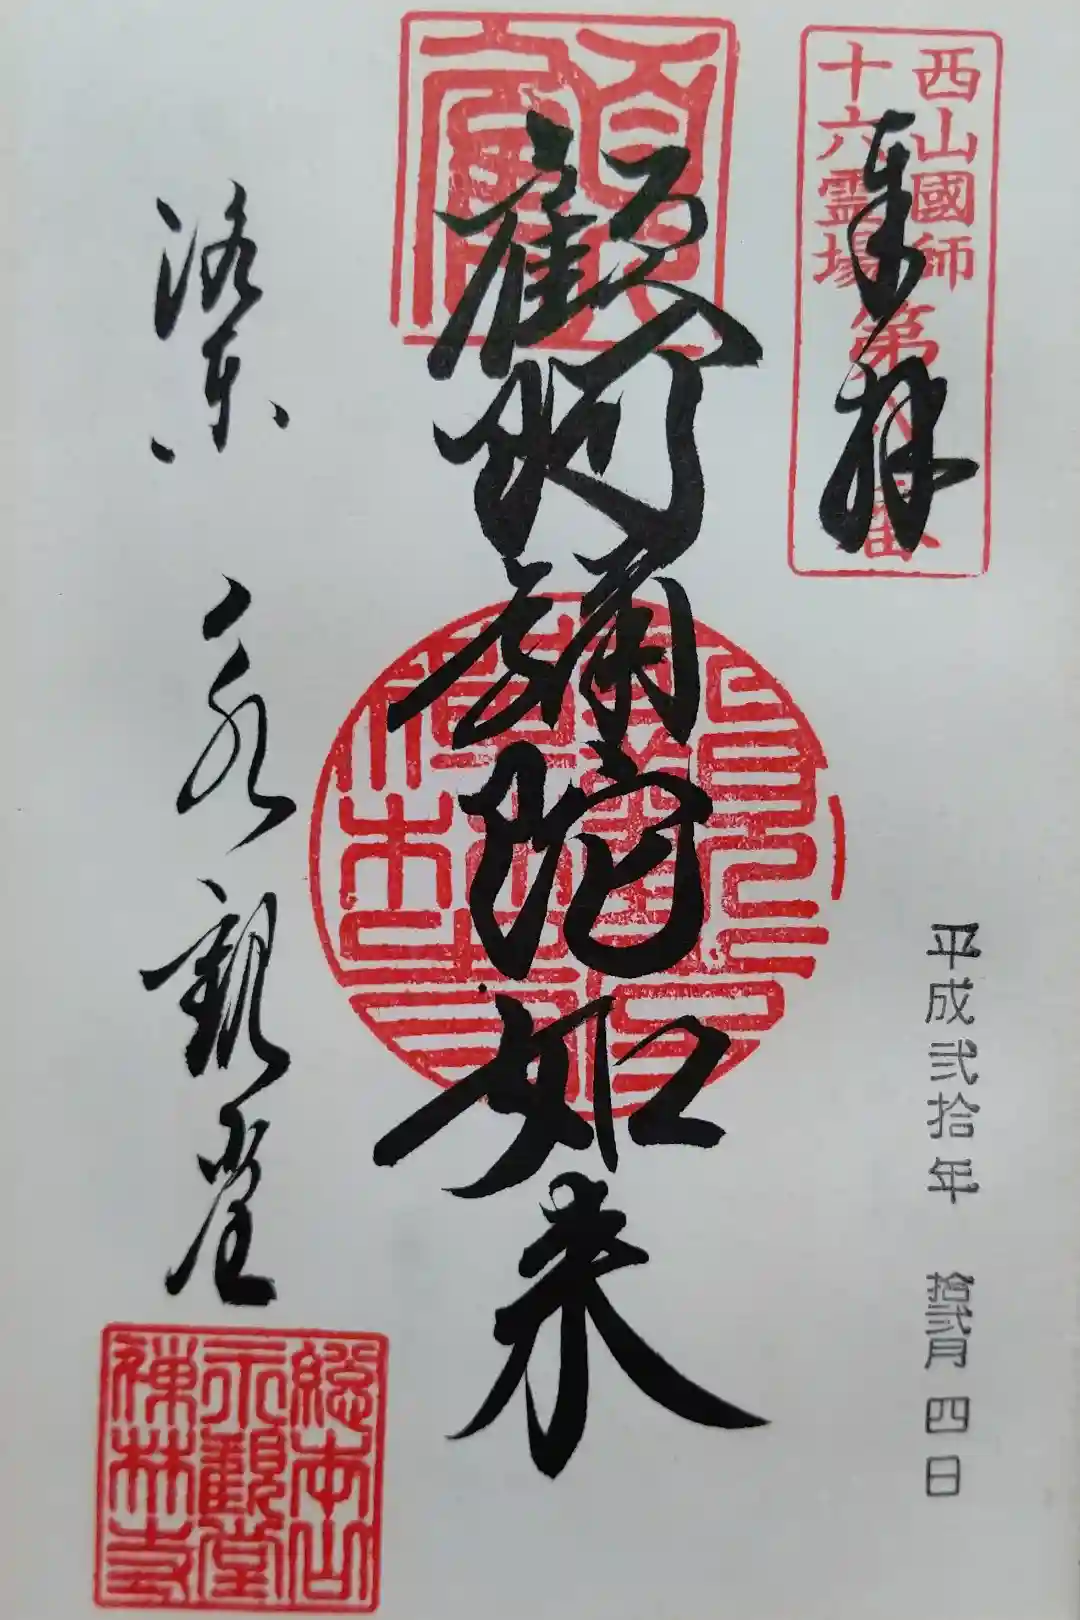 西山國師
十六霊場
第八番
奉拝
平成弐拾年 拾弐月四日
顧阿彌陀如来
洛東 永観堂
總本山
永觀堂
禅林寺